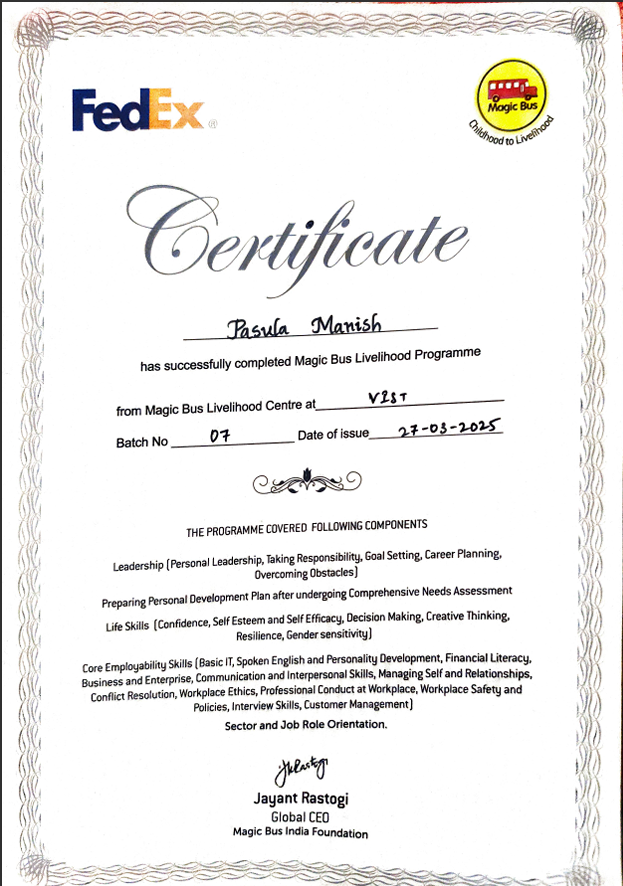 FedEx®
Magic Bus
Childhood to Livelihood
Certificate
Pasula Manish
has successfully completed Magic Bus Livelihood Programme
from Magic Bus Livelihood Centre at VIST
Batch No 07 Date of issue 27-03-2025
THE PROGRAMME COVERED FOLLOWING COMPONENTS
Leadership (Personal Leadership, Taking Responsibility, Goal Setting, Career Planning,
Overcoming Obstacles)
Preparing Personal Development Plan after undergoing Comprehensive Needs Assessment
Life Skills (Confidence, Self Esteem and Self Efficacy, Decision Making, Creative Thinking,
Resilience, Gender sensitivity)
Core Employability Skills (Basic IT, Spoken English and Personality Development, Financial Literacy,
Business and Enterprise, Communication and Interpersonal Skills, Managing Self and Relationships,
Conflict Resolution, Workplace Ethics, Professional Conduct at Workplace, Workplace Safety and
Policies, Interview Skills, Customer Management)
Sector and Job Role Orientation.
Jayant Rastogi
Global CEO
Magic Bus India Foundation